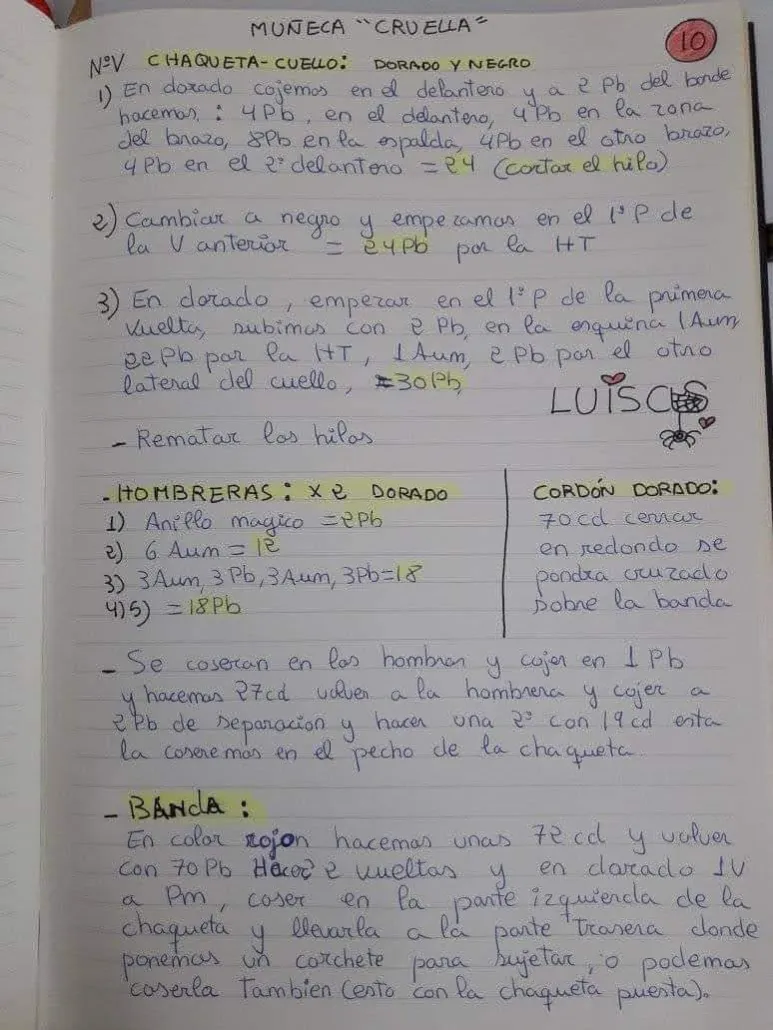 MUÑECA "CRUELLA"
10
NºV CHAQUETA-CUELLO: DORADO Y NEGRO
1) En dorado cojemos en el delantero y a 2 Pb del borde
hacemos,: 4Pb, en el delantero, 4Pb en la zona
del brazo, 8Pb en la espalda, 4Pb en el otro brazo,
4Pb en el 2º delantero = 24 (cortar el hilo)
2) Cambiar a negro y empezamos en el 1º P de
la V anterior = 24Pb por la HT
3) En dorado, empezar en el 1º P de la primera
vuelta, subimos con 2 Pb, en la esquina 1Aum
22Pb por la HT, 1Aum, 2Pb por el otro
lateral del cuello, =30Pb,
LUISCUS
- Rematar los hilos
- HOMBRERAS: x2 DORADO
1) Anillo magico =2Pb
2) 6 Aum = 12
3) 3Aum, 3Pb, 3Aum, 3Pb=18
4)5) =18Pb
CORDÓN DORADO:
70cd cerrar
en redondo se
pondra cruzado
sobre la banda
- Se coseran en los hombros y cojer en 1 Pb
y hacemos 27cd volver a la hombrera y cojer a
2Pb de separacion y hacer una 2ª con 19cd esta
la coseremos en el pecho de la chaqueta
- BANDA:
En color rojon hacemos unas 72cd y volver
con 70Pb Hacer 2 vueltas y en dorado 1V
a Pm, coser en la parte izquierda de la
chaqueta y llevarla a la parte trasera donde
ponemos un corchete para sujetar, o podemos
coserla Tambien (esto con la chaqueta puesta).